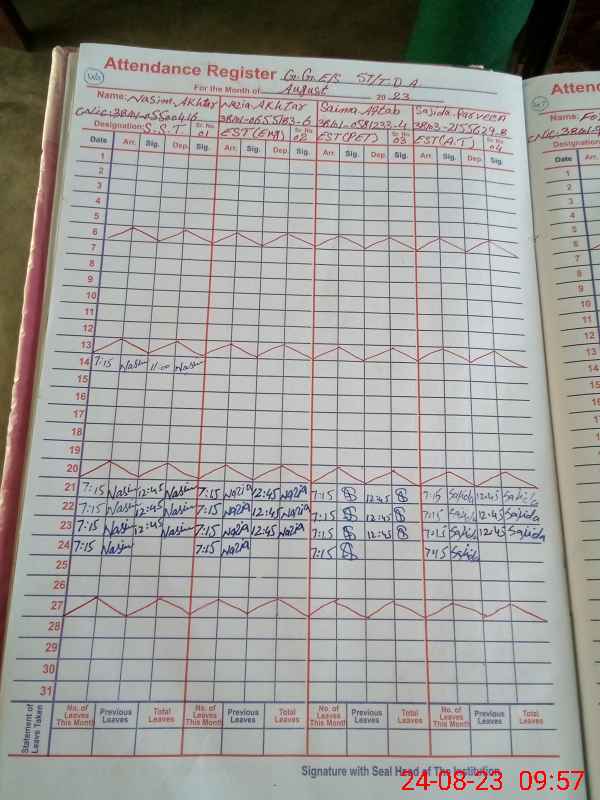 Attendance Register G.G.E/S ST/T.D.A
For the Month of August 2023
Name: Nasim Akhtar Nazia Akhtar Saima Aftab Sajida Parveen
Designation: S.S.T Sr. No. 01 EST(EMA) Sr. No. 02 EST(PET) Sr. No. 03 EST(A.T) Sr. No. 04
Date Arr. Sig. Dep. Sig. Arr. Sig. Dep. Sig. Arr. Sig. Dep. Sig. Arr. Sig. Dep. Sig.
1
2
3
4
5
6
7
8
9
10
11
12
13
14 7:15 Nasim 11:00 Nasim
15
16
17
18
19
20
21 7:15 Nasim 12:45 Nasim 7:15 Nazia 12:45 Nazia 7:15 12:45 7:15 Sajida 12:45 Sajida
22 7:15 Nasim 12:45 Nasim 7:15 Nazia 12:45 Nazia 7:15 12:45 7:15 Sajida 12:45 Sajida
23 7:15 Nasim 12:45 Nasim 7:15 Nazia 12:45 Nazia 7:15 12:45 7:15 Sajida 12:45 Sajida
24 7:15 Nasim 7:15 Nazia 7:15 7:15 Sajida
25
26
27
28
29
30
31
Statement of Leave Taken
No. of Leaves This Month Previous Leaves Total Leaves No. of Leaves This Month Previous Leaves Total Leaves No. of Leaves This Month Previous Leaves Total Leaves No. of Leaves This Month Previous Leaves Total Leaves
Signature with Seal Head of The Institution
24-08-23 09:57